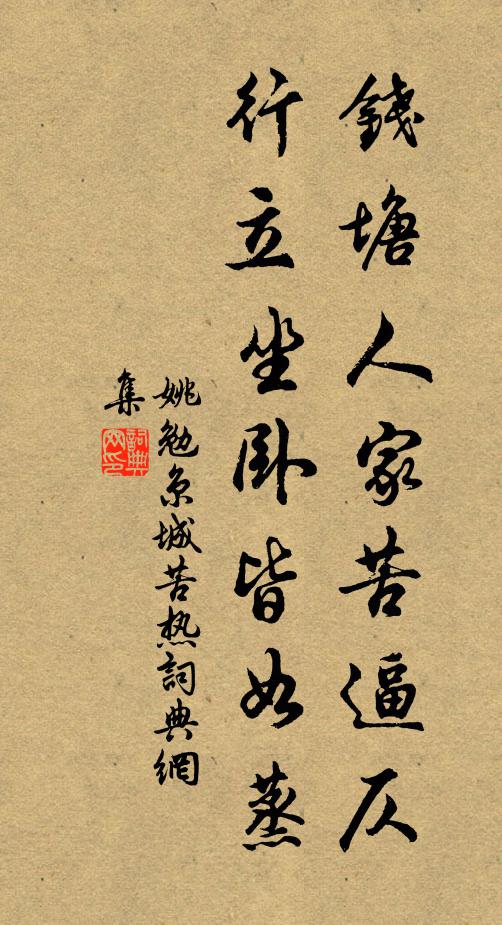 錢塘人家苦逼仄
行立坐卧皆如蒸
姚勉京城苦热詞典網
集
詞典網印